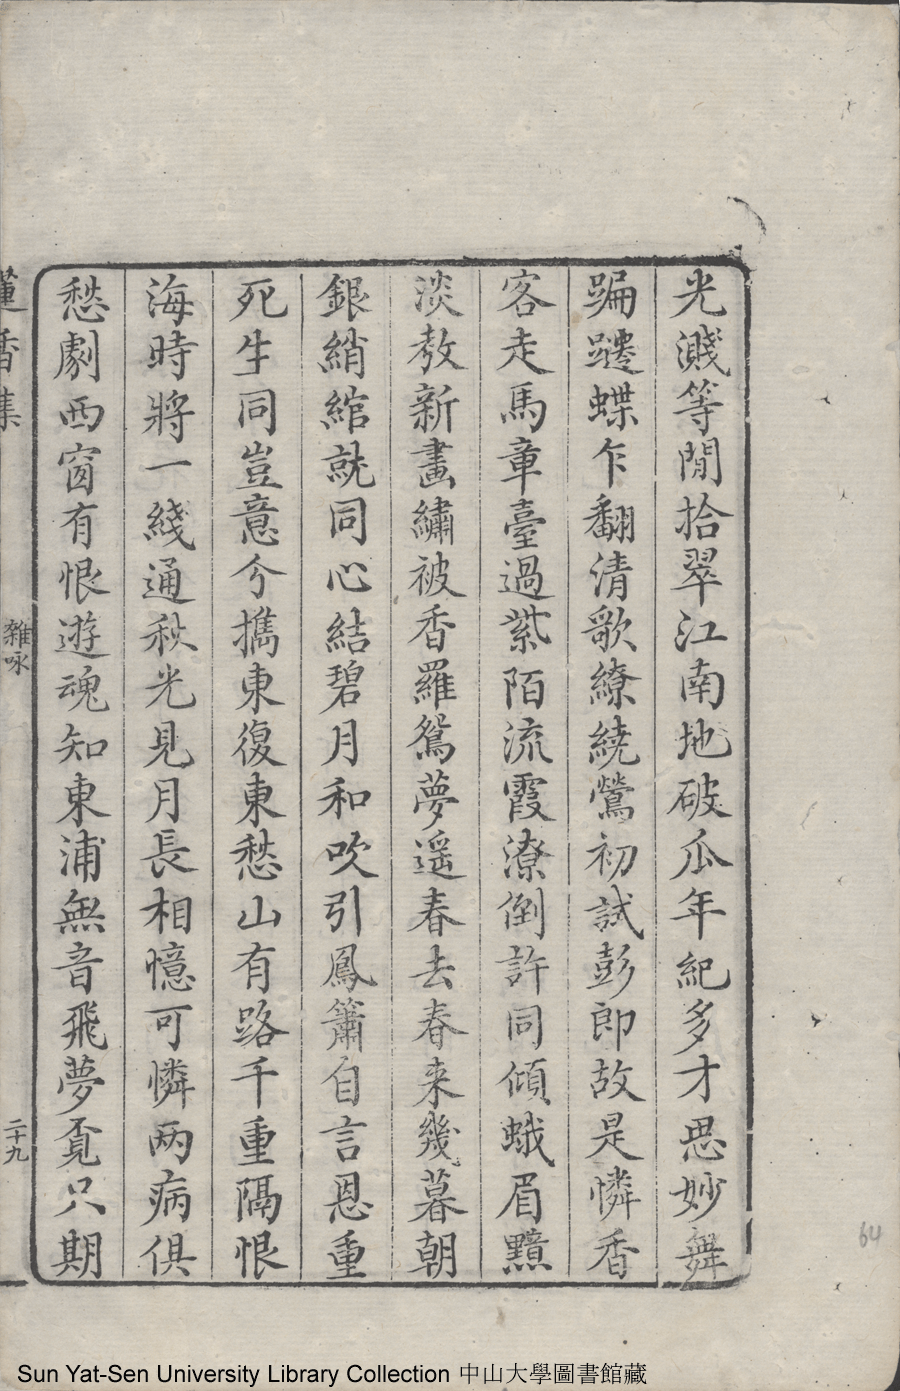 光濺等閒拾翠江南地破瓜年紀多才思妙舞
蹁躚蝶乍翻清歌繚繞鶯初試彭郎故是憐香
客走馬章臺過紫陌流霞潦倒許同傾蛾眉黯
淡教新畫繡被香羅鴛夢遥春去春来幾暮朝
銀綃綰就同心結碧月和吹引鳳簫自言恩重
死生同豈意分攜東復東愁山有路千重隔恨
海時將一綫通秋光見月長相憶可憐两病俱
愁劇西窗有恨遊魂知東浦無音飛夢覔只期
蓮香集
雜咏
二十九
64
Sun Yat-Sen University Library Collection 中山大學圖書館藏